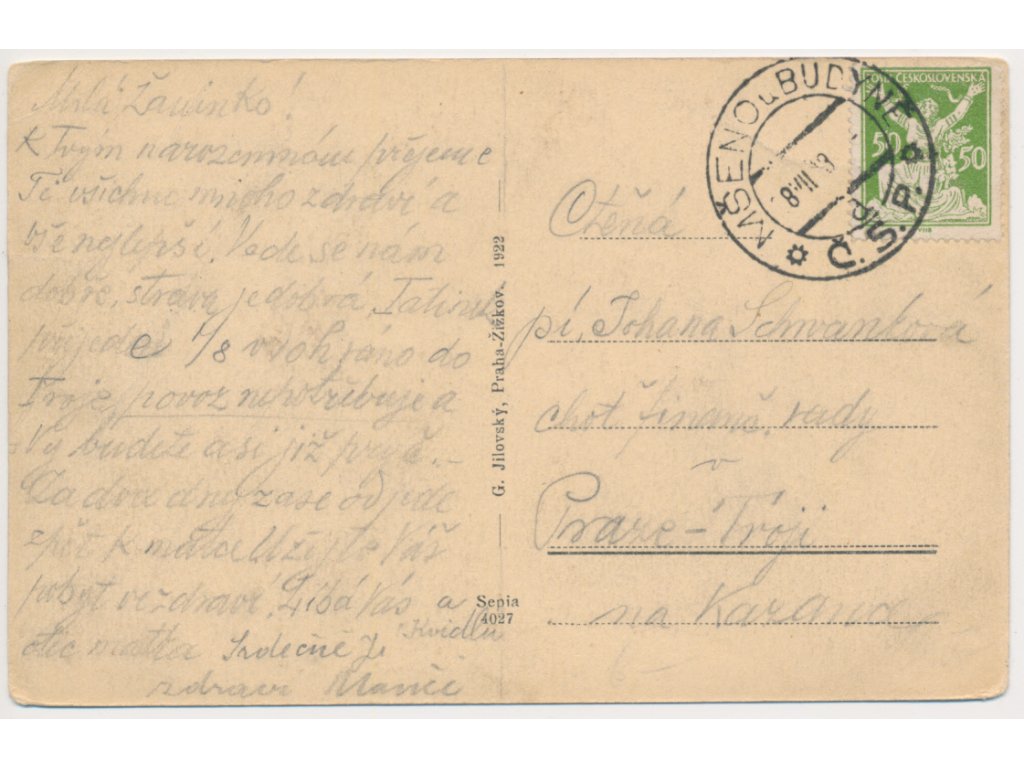 Milá Žaninko!
K Tvým narozeninám přejeme
Ti všichni mnoho zdraví a
vše nejlepší. Vede se nám
dobře, strava je dobrá, Tatínek
přijede 1/8 v 10h ráno do
Troje, povoz nepotřebuje a
Vy budete asi již prvé.
Za dva dny zase odjede
zpět k matce Užijte Váš
pobyt ve zdraví. Líbá Vás a
otec matka Srdečně Je
zdraví Mančí
G. Jílovský, Praha-Žižkov. 1922
Sepia
4027
MŠENO u BUDYNĚ
Č.S.P.
8 VII 23
POŠTA ČESKOSLOVENSKÁ
50 50
Ctěná
pí, Johana Schwanková
choť finanč. rady
v
Praze-Tróji
na